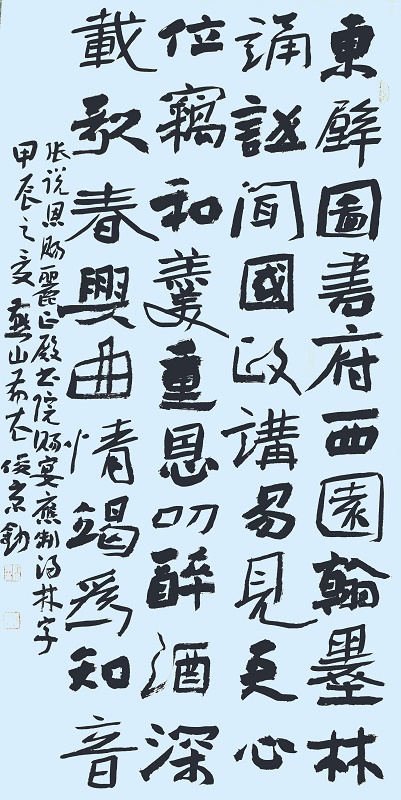 東壁圖書府西園翰墨林
誦詩聞國政講易見天心
位竊和羹重恩叨醉酒深
載歌春興曲情竭爲知音
张说恩赐麗正殿书院赐宴應制得林字
甲辰之夏燕山布衣